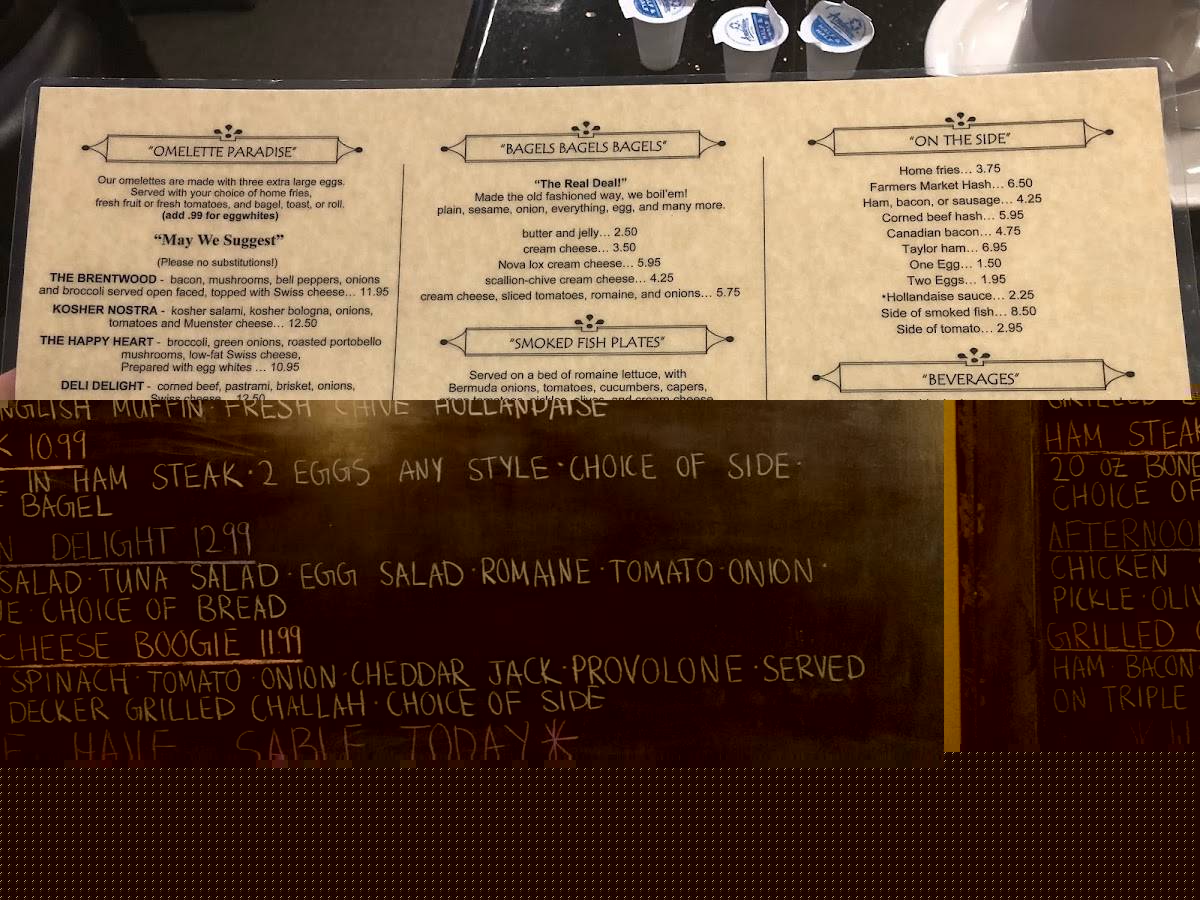 "OMELETTE PARADISE"
Our omelettes are made with three extra large eggs.
Served with your choice of home fries,
fresh fruit or fresh tomatoes, and bagel, toast, or roll.
(add .99 for eggwhites)
"May We Suggest"
(Please no substitutions!)
THE BRENTWOOD - bacon, mushrooms, bell peppers, onions
and broccoli served open faced, topped with Swiss cheese... 11.95
KOSHER NOSTRA - kosher salami, kosher bologna, onions,
tomatoes and Muenster cheese... 12.50
THE HAPPY HEART - broccoli, green onions, roasted portobello
mushrooms, low-fat Swiss cheese,
Prepared with egg whites ... 10.95
DELI DELIGHT - corned beef, pastrami, brisket, onions,
Swiss cheese... 12.50
"BAGELS BAGELS BAGELS"
"The Real Deal!"
Made the old fashioned way, we boil'em!
plain, sesame, onion, everything, egg, and many more.
butter and jelly... 2.50
cream cheese... 3.50
Nova lox cream cheese... 5.95
scallion-chive cream cheese... 4.25
cream cheese, sliced tomatoes, romaine, and onions... 5.75
"SMOKED FISH PLATES"
Served on a bed of romaine lettuce, with
Bermuda onions, tomatoes, cucumbers, capers,
pickles, olives, and cream cheese
"ON THE SIDE"
Home fries... 3.75
Farmers Market Hash... 6.50
Ham, bacon, or sausage... 4.25
Corned beef hash... 5.95
Canadian bacon... 4.75
Taylor ham... 6.95
One Egg... 1.50
Two Eggs... 1.95
*Hollandaise sauce... 2.25
Side of smoked fish... 8.50
Side of tomato... 2.95
"BEVERAGES"
NGLISH MUFFIN · FRESH CHIVE HOLLANDAISE
K 10.99
E IN HAM STEAK · 2 EGGS ANY STYLE · CHOICE OF SIDE ·
F BAGEL
N DELIGHT 12.99
SALAD · TUNA SALAD · EGG SALAD · ROMAINE · TOMATO · ONION ·
E · CHOICE OF BREAD
CHEESE BOOGIE 11.99
SPINACH · TOMATO · ONION · CHEDDAR JACK · PROVOLONE · SERVED
DECKER GRILLED CHALLAH · CHOICE OF SIDE
E HAVE SABLE TODAY *
HAM STEAK
20 OZ BONE
CHOICE OF
AFTERNOON
CHICKEN
PICKLE · OLIV
GRILLED C
HAM · BACON
ON TRIPLE